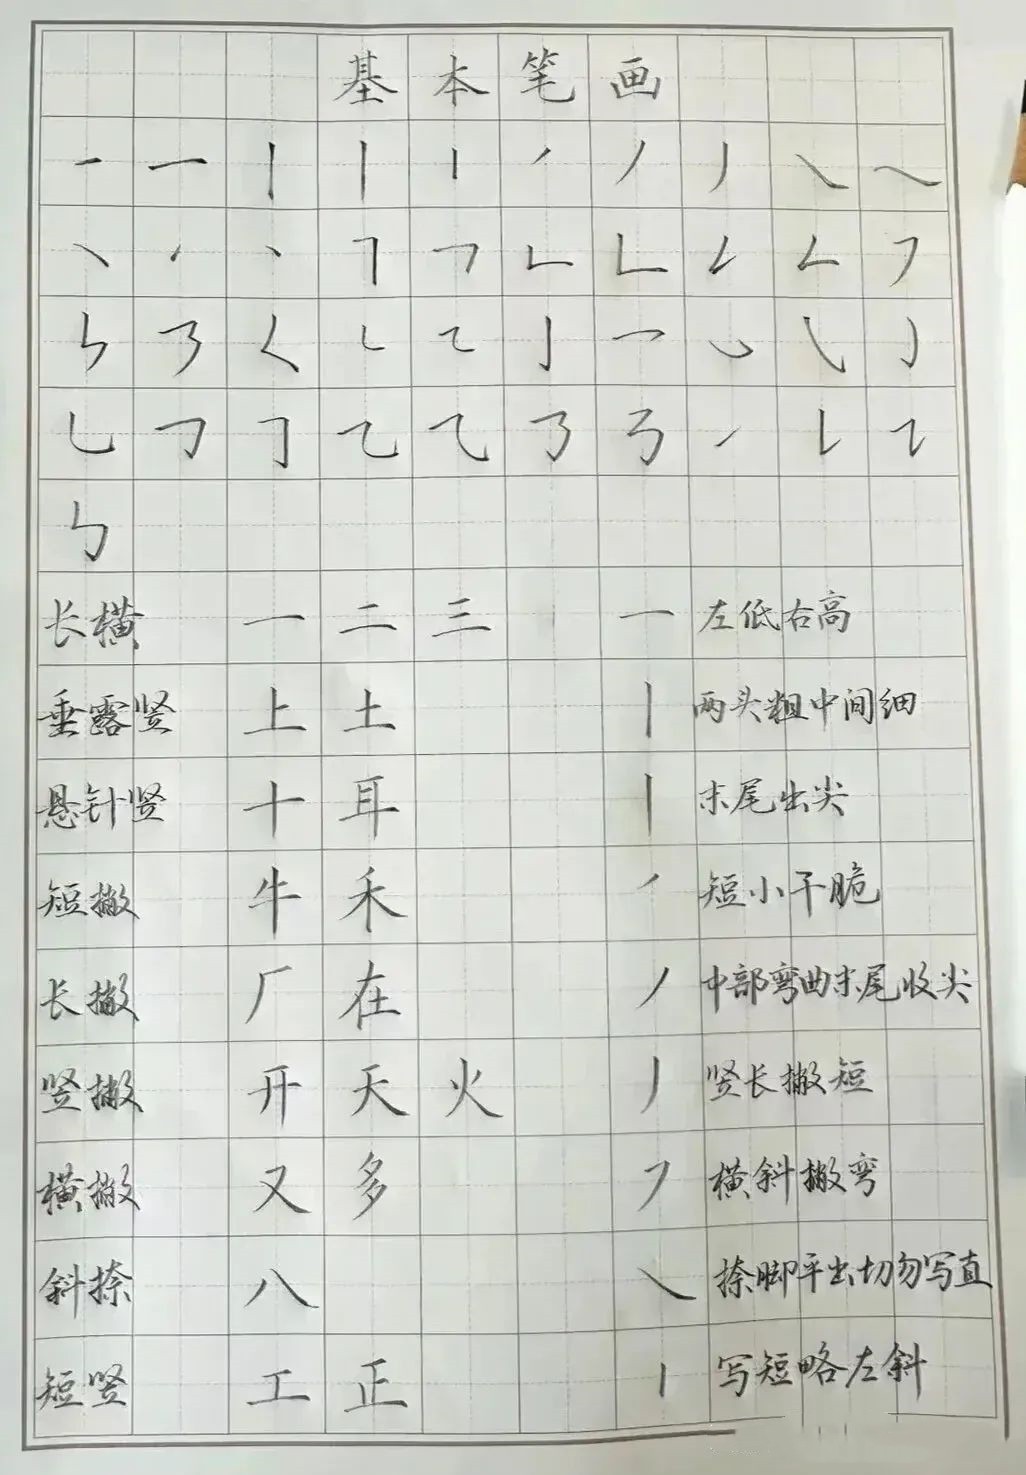 基本笔画
㇐ ㇐ 丨 丨 丨 ㇒ ㇒ ㇓ ㇏ ㇏
㇔ ㇒ ㇔ ㇕ ㇖ ㇗ ㇗ ㇙ ㇜ ㇇
ㄣ ㇋ ㇛ ㇗ ㇍ 亅 ㇖ ㇃ ㇂ ㇁
乚 ㇆ ㇆ ㇈ ⺄ ㇋ ㇡ ㇀ ㇙ ㇊
㇉
长横 一 二 三 一 左低右高
垂露竖 上 土 丨 两头粗中间细
悬针竖 十 耳 丨 末尾出尖
短撇 牛 禾 ㇒ 短小干脆
长撇 厂 在 ㇒ 中部弯曲末尾收尖
竖撇 开 天 火 ㇓ 竖长撇短
横撇 又 多 ㇇ 横斜撇弯
斜捺 八 ㇏ 捺脚平出切勿写直
短竖 工 正 丨 写短略左斜